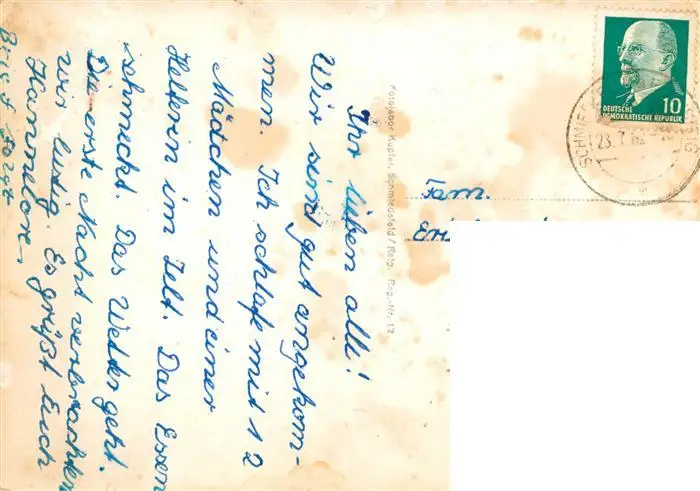 Ihr lieben alle!
Wir sind gut angekom-
men. Ich schlafe mit 12
Mädchen und einer
Helferin im Zelt. Das Essen
schmeckt. Das Wetter geht.
Die erste Nacht verbrachten
wir lustig. Es grüßt Euch
Hannelore.
Brief folgt
Fotolabor Kupfer, Schmiedefeld / Retg. Reg.-Nr. 12
10
DEUTSCHE
DEMOKRATISCHE REPUBLIK
23.7.
Fam.